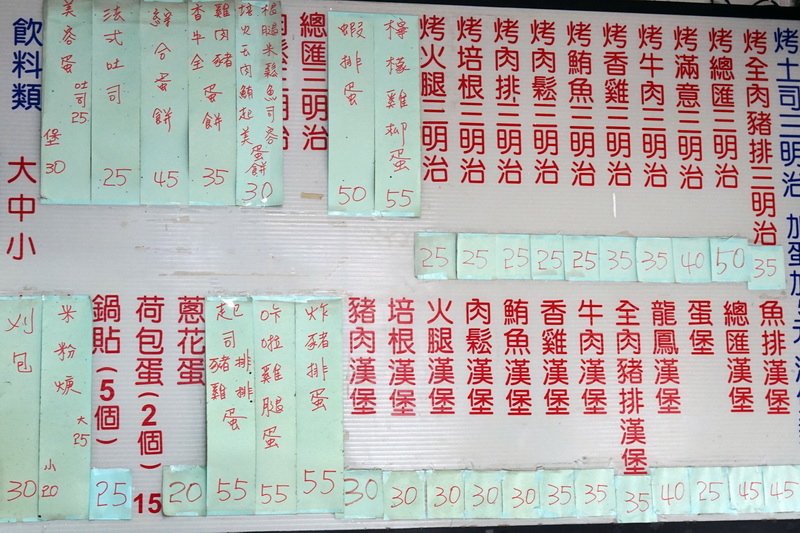 烤土司三明治 加蛋加
烤全肉豬排三明治 35
烤總匯三明治 50
烤滿意三明治 40
烤牛肉三明治 35
烤香雞三明治 35
烤鮪魚三明治 25
烤肉鬆三明治 25
烤肉排三明治 25
烤培根三明治 25
烤火腿三明治 25
檸檬雞柳蛋 55
蝦排蛋 50
總匯三明治
蛋餅 30
蛋餅 35
綜合蛋餅 45
法式吐司 25
美容蛋 吐司25 堡30
飲料類 大中小
魚排漢堡 45
總匯漢堡 45
蛋堡 25
龍鳳漢堡 40
全肉豬排漢堡 35
牛肉漢堡 35
香雞漢堡 35
鮪魚漢堡 30
肉鬆漢堡 30
火腿漢堡 30
培根漢堡 30
豬肉漢堡 30
炸豬排蛋 55
咔啦雞腿蛋 55
起司豬排雞排蛋 55
蔥花蛋 20
荷包蛋(2個) 15
鍋貼(5個) 25
米粉焿 大25 小20
刈包 30